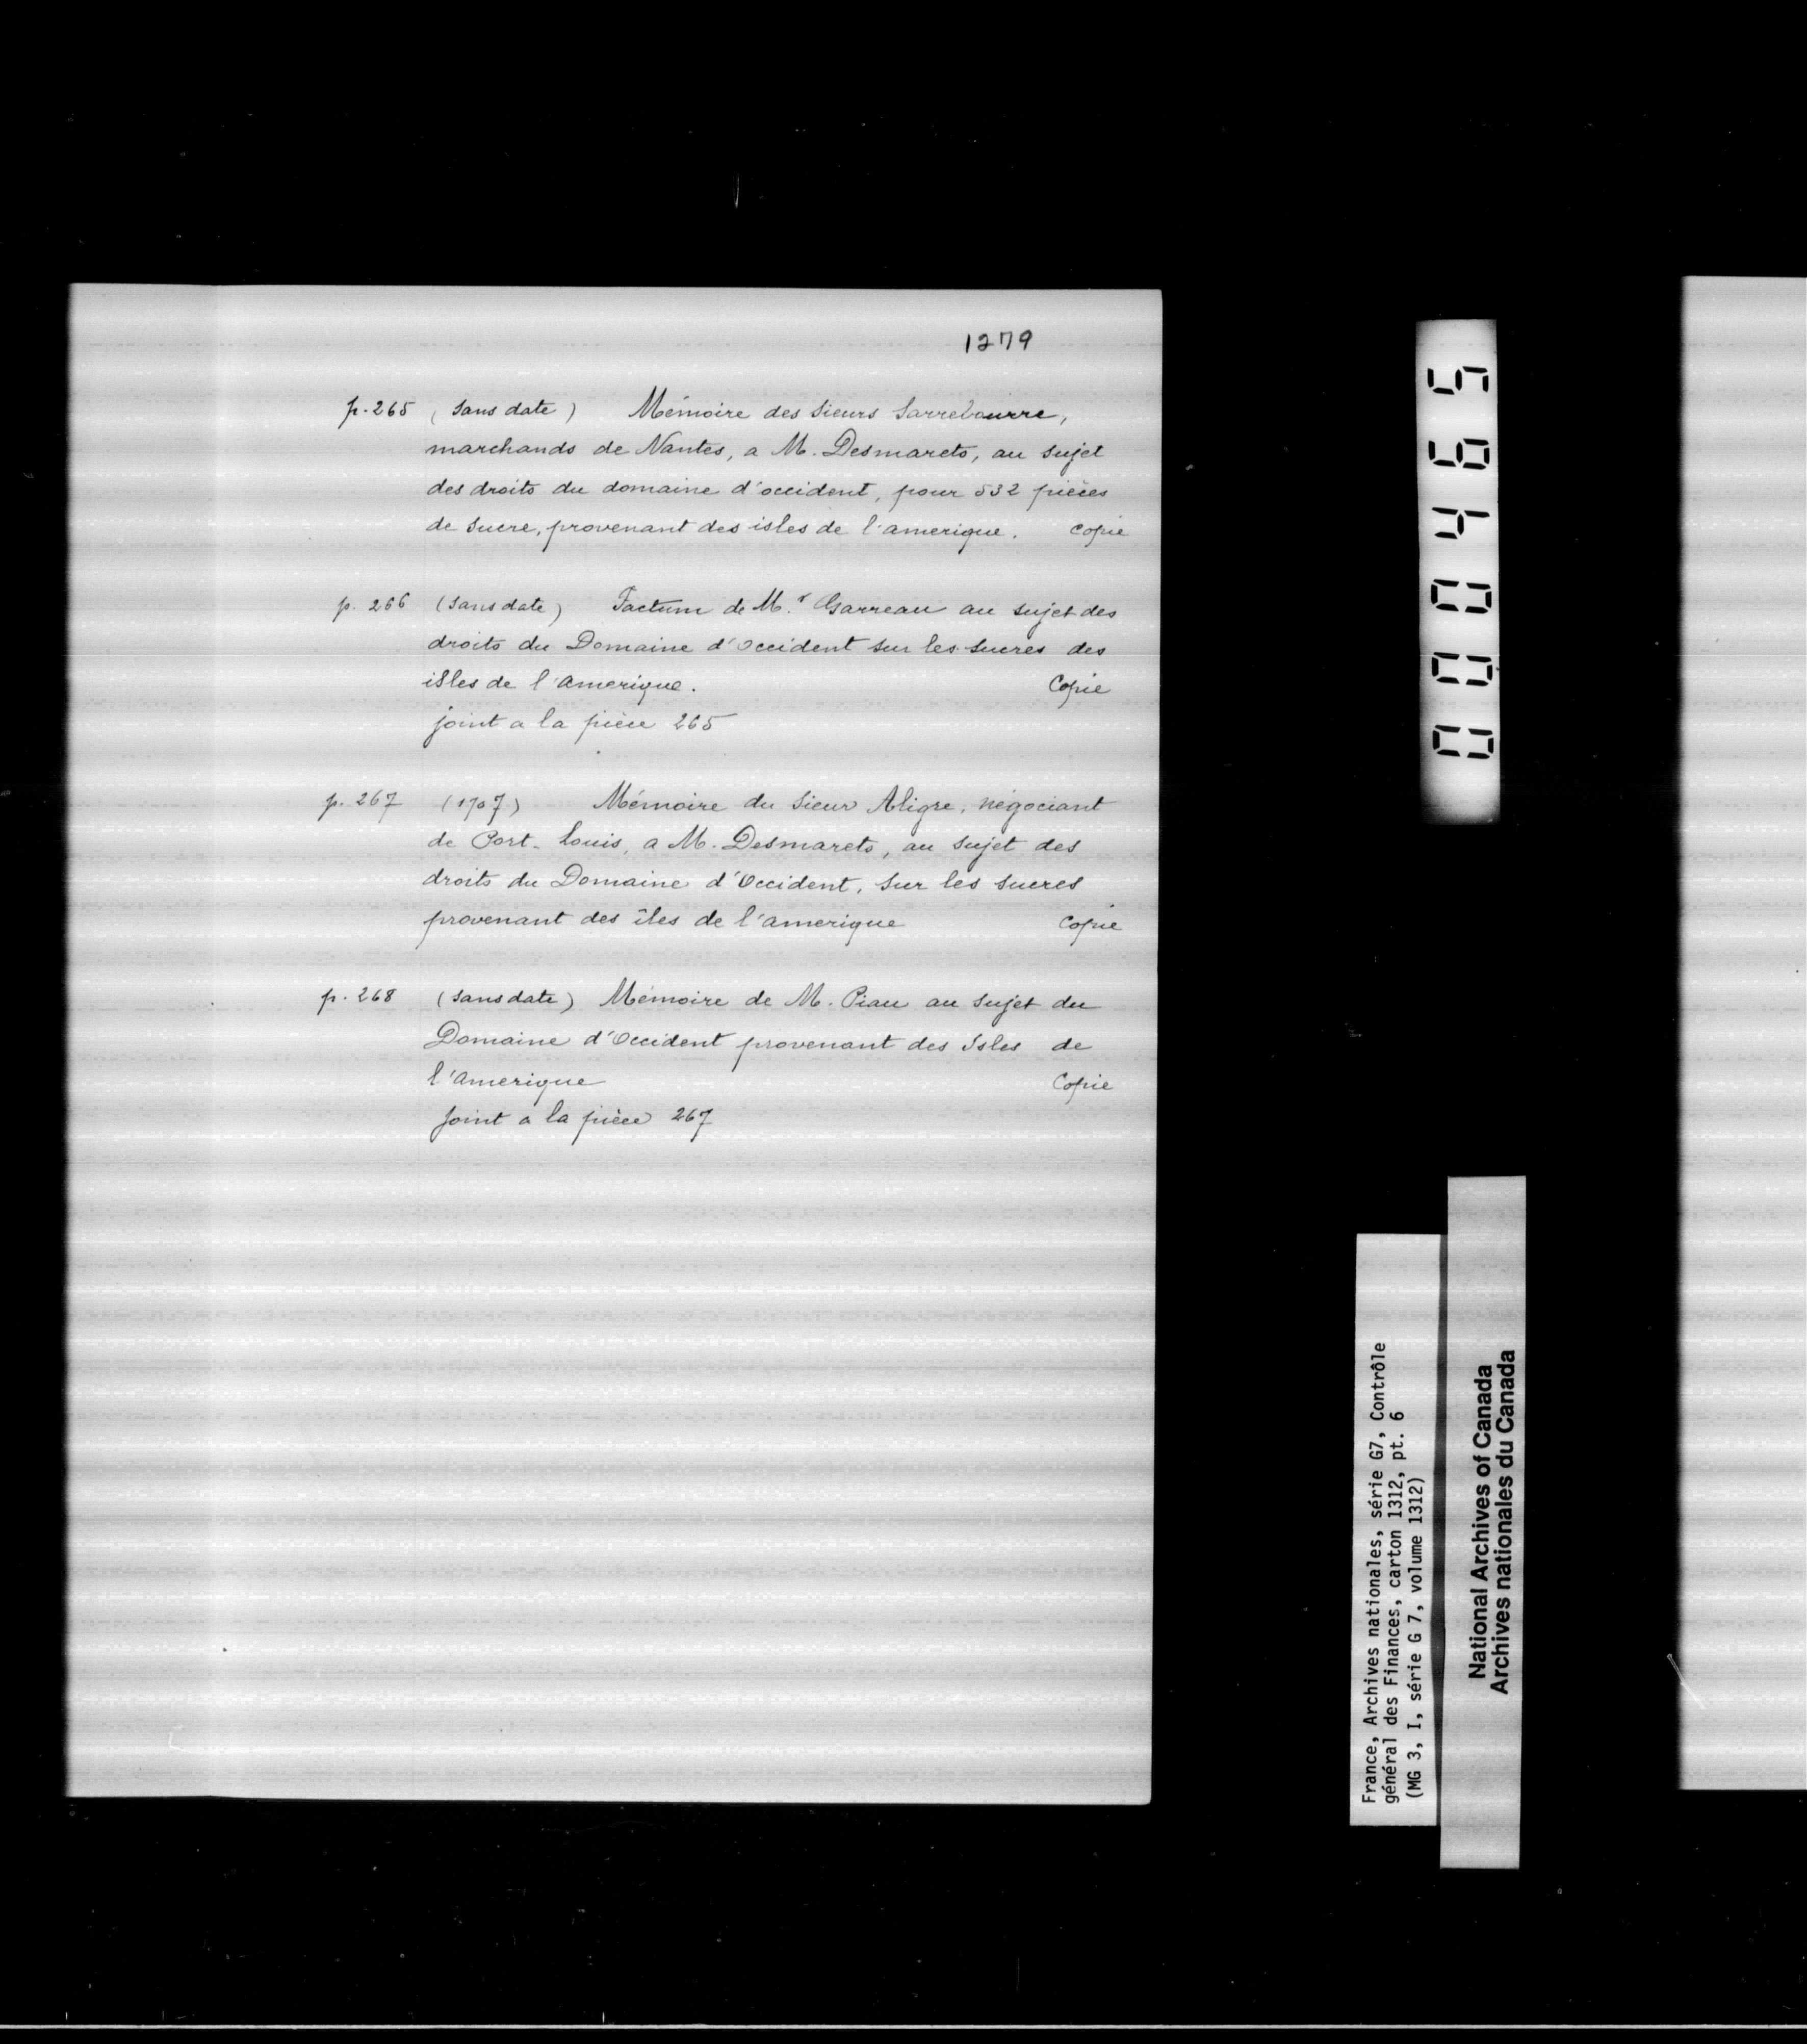 1279
p. 265 (Sans date) Mémoire des Sieurs Sarrebourre,
marchands de Nantes, a M. Desmarets, au sujet
des droits du domaine d'occident, pour 532 pièces
de sucre, provenant des isles de l'amerique. Copie
p. 266 (Sans date) Factum de M.r Garreau au sujet des
droits du Domaine d'Occident sur les sucres des
isles de l'amerique. Copie
joint a la pièce 265
p. 267 (1707) Mémoire du Sieur Aligre, négociant
de Port-Louis, a M. Desmarets, au sujet des
droits du Domaine d'Occident, sur les sucres
provenant des îles de l'amerique Copie
p. 268 (Sans date) Mémoire de M. Piau au sujet du
Domaine d'Occident provenant des Isles de
l'Amerique Copie
Joint a la pièce 267
000465
France, Archives nationales, série G7, Contrôle
général des Finances, carton 1312, pt. 6
(MG 3, I, série G 7, volume 1312)
National Archives of Canada
Archives nationales du Canada